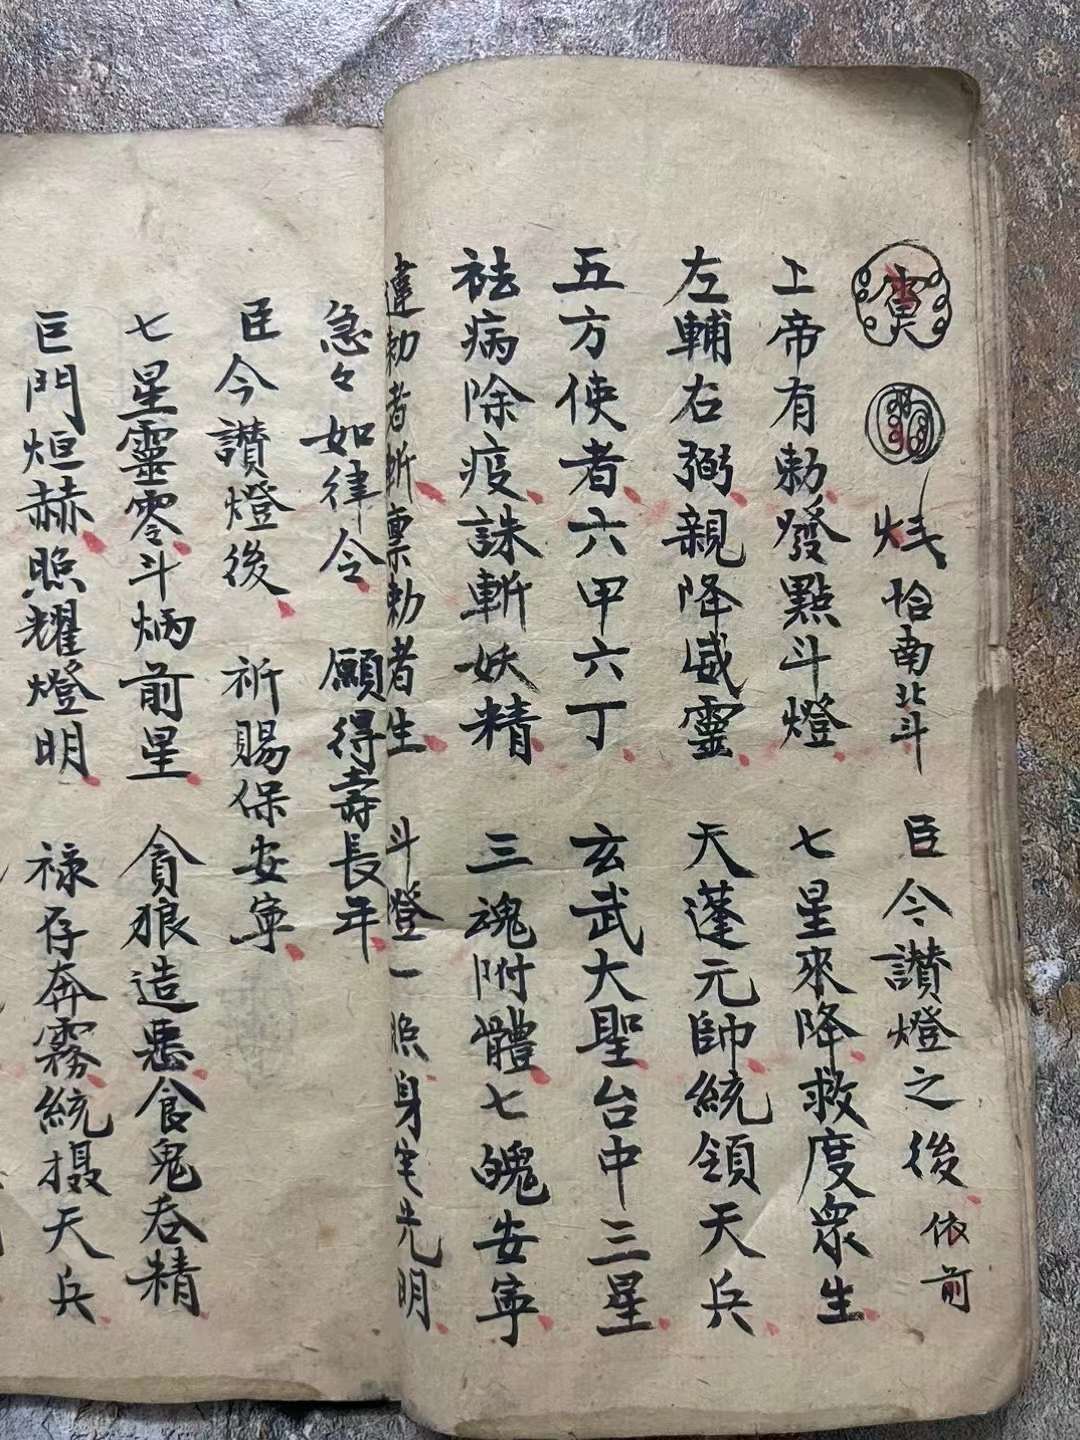 恰南北斗 臣今讃燈之後 依前
上帝有勅發點斗燈 七星來降救度衆生
左輔右弼親降威靈 天蓬元帥統領天兵
五方使者六甲六丁 玄武大聖台中三星
祛病除疫誅斬妖精 三魂附體七魄安寧
違勅者斬稟勅者生 斗燈一照身宅光明
急々如律令 願得壽長年
臣今讃燈後 祈賜保安寧
七星靈零斗炳前星 貪狼造惡食鬼吞精
巨門烜赫照耀燈明 祿存奔霧統摄天兵